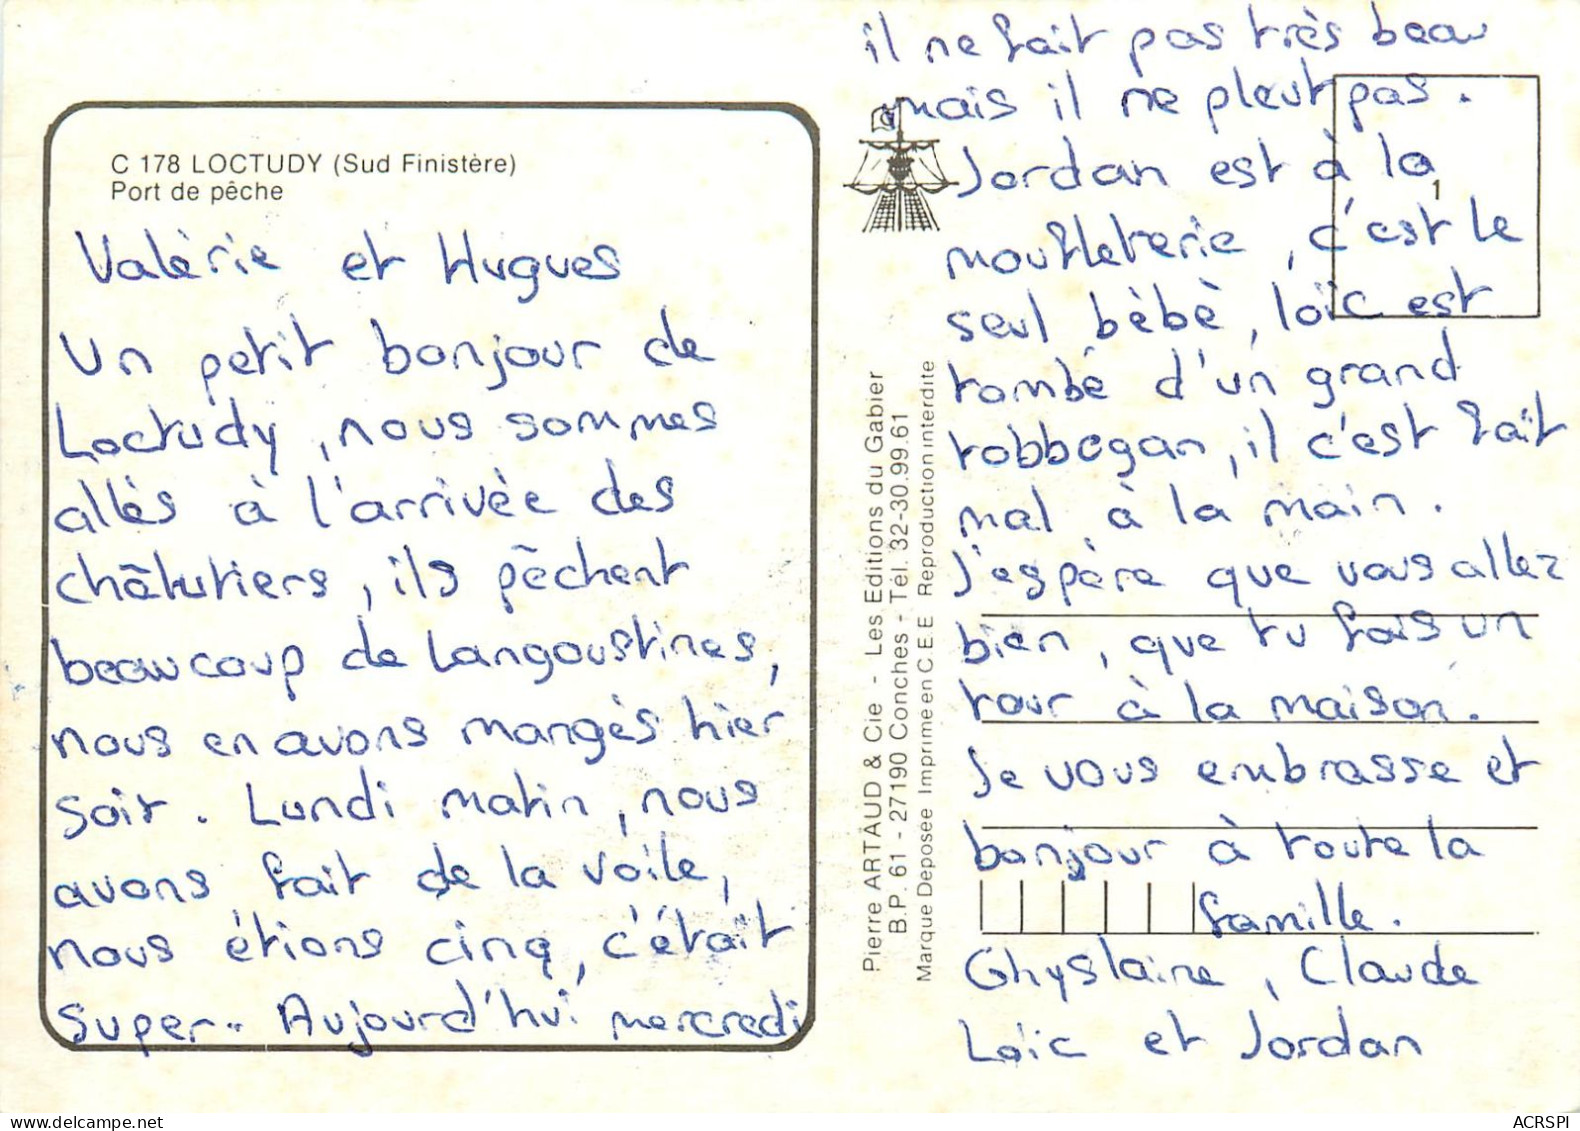 C 178 LOCTUDY (Sud Finistère)
Port de pêche
Valèrie et Hugues
Un petit bonjour de
Loctudy, nous sommes
allès à l'arrivèe des
châlutiers, ils pêchent
beaucoup de langoustines,
nous en avons mangès hier
soir. Lundi matin, nous
avons fait de la voile,
nous étions cinq, c'étaît
super.. Aujourd'hui mercredi
il ne fait pas très beau
mais il ne pleut pas.
Jordan est à la
moufleterie, c'est le
seul bèbè, loïc est
tombé d'un grand
tobbogan, il c'est faît
mal à la main.
J'espère que vous allez
bien, que tu fais un
tour à la maison.
Je vous embrasse et
bonjour à toute la
famille.
Ghyslaine, Claude
Loïc et Jordan
1
Pierre ARTAUD & Cie - Les Editions du Gabier
B.P. 61 - 27190 Conches - Tél. 32-30.99.61
Marque Deposée Imprimé en C E E Reproduction interdite
ACRSPI